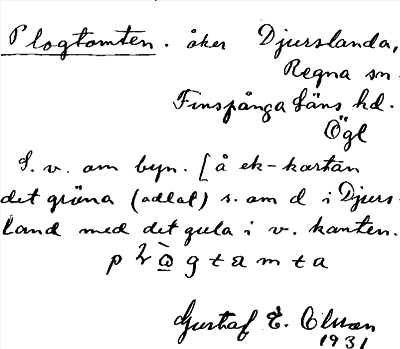 Plogtomten. åker Djurslanda,
Regna sn.
Finspånga Läns hd.
Ögl
S. v. om byn. [å ek-kartan
det gröna (odlat) s. om d i Djurs-
land med det gula i v. kanten.
Gustaf E. Olsson
1931